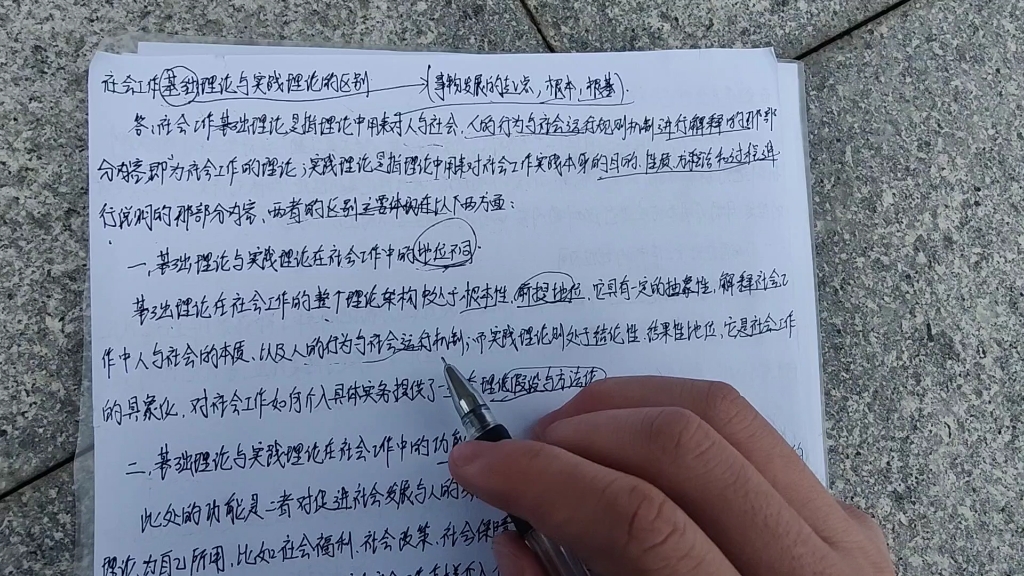 社会工作基础理论与实践理论的区别 (事物发展的起点,根本,根基)
答:社会工作基础理论是指理论中用来对人与社会,人的行为与社会运行规则机制进行解释的那部
分内容即为社会工作的理论;实践理论是指理论中用来对社会工作实践本身的目的、性质、方法和过程进
行说明的那部分内容、两者的区别主要体现在以下两方面:
一,基础理论与实践理论在社会工作中的地位不同.
基础理论在社会工作的整个理论架构中处于根本性,前提地位,它具有一定的抽象性,解释社会工
作中人与社会的本质、以及人的行为与社会运行机制;而实践理论则处于结论性、结果性地位,它是社会工作
的具象化,对社会工作如何介入具体实务提供了一 理论假设与方法
二,基础理论与实践理论在社会工作中的功能
此处的功能是二者对促进社会发展与人的
理论,为自己所用,比如社会福利、社会政策、社会保